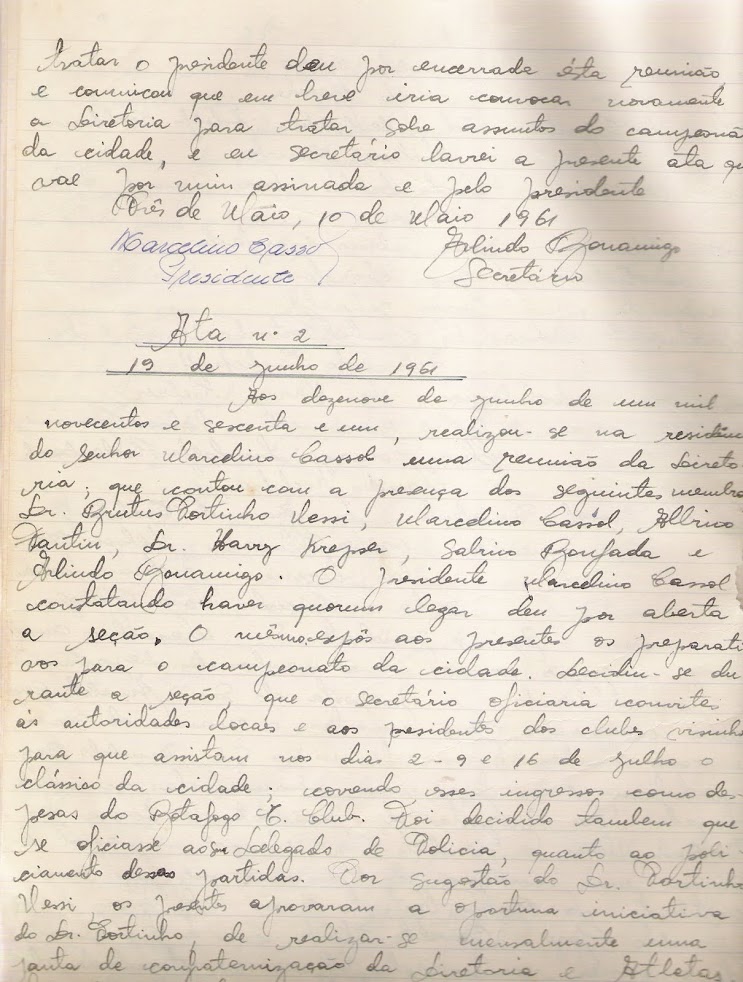 tratar o presidente deu por encerrada ésta reunião
e comunicou que em breve iria convocar novamente
a Diretoria para tratar sobre assuntos do campeona
da cidade, e eu secretário lavrei a presente áta qu
vae por mim assinada e pelo presidente
Três de Maio, 10 de Maio 1961
Marcelino Cassol Arlindo Bonamigo
Presidente Secretário
Ata n. 2
19 de Junho de 1961
Aos dezenove de Junho de um mil
novecentos e sescenta e um, realizou-se na residên
do Senhor Marcelino Cassol uma reunião da Direto
ria; que contou com a presença dos seguintes membro
Dr. Brutus Portinho Nessi, Marcelino Cassol, Albino
Dr. Harry Krepser, Sabino Bonfada e
Arlindo Bonamigo. O Presidente Marcelino Cassol
constatando haver quorum legar deu por aberta
a seção. O mêsmo expôs aos presentes os preparati
vos para o campeonato da cidade. Decidiu-se du
rante a seção, que o secretário oficiaria convites
às autoridades locaes e aos presidentes dos clubes visinho
para que assistam nos dias 2-9 e 16 de Julho o
clássico da cidade; correndo esses ingressos como des-
pesas do Botafogo F. Club. Foi decidido tambem que
se oficiasse ao Delegado de Policia, quanto ao poli
ciamento dessas partidas. Por sugestão do Dr. Portinho
Nessi, os presentes aprovaram a oportuna iniciativa
do Dr. Portinho, de realizar-se mensalmente uma
janta de confraternização da Diretoria e Atletas.